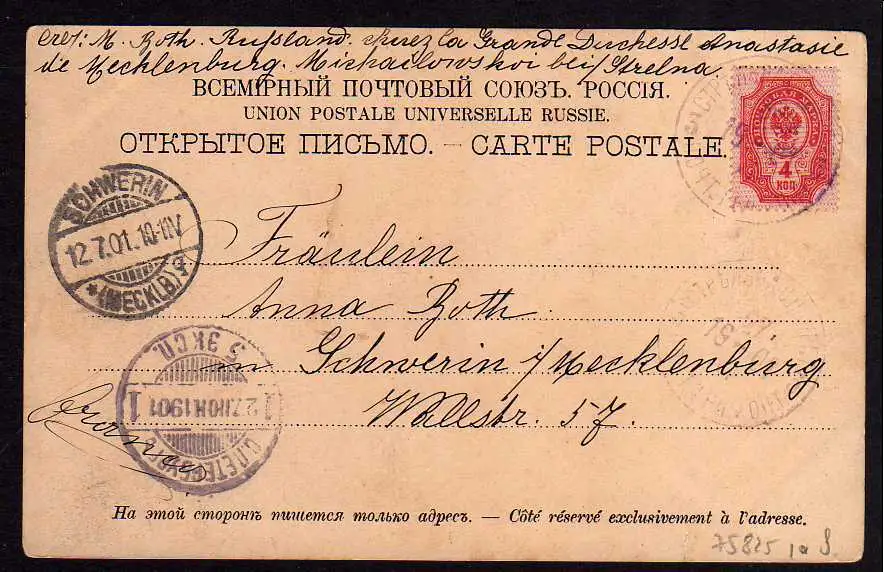 M. Both. Russland. chez la Grande Duchesse Anastasie
de Mecklenburg. Michaelowskoi bei/Strelna.
ВСЕМІРНЫЙ ПОЧТОВЫЙ СОЮЗЪ. РОССІЯ.
UNION POSTALE UNIVERSELLE RUSSIE.
ОТКРЫТОЕ ПИСЬМО. — CARTE POSTALE.
ПОЧТОВАЯ МАРКА
4
КОП
SCHWERIN
12.7.01.10-11V
*(MECKLB.)
Fräulein
Anna Both
in Schwerin i/Mecklenburg
Wallstr. 57.
С.ПЕТЕРБУРГЪ
1 27 ІЮН.1901 1
5 ЭКСП.
На этой сторонѣ пишется только адресъ. — Côté réservé exclusivement à l'adresse.
75825